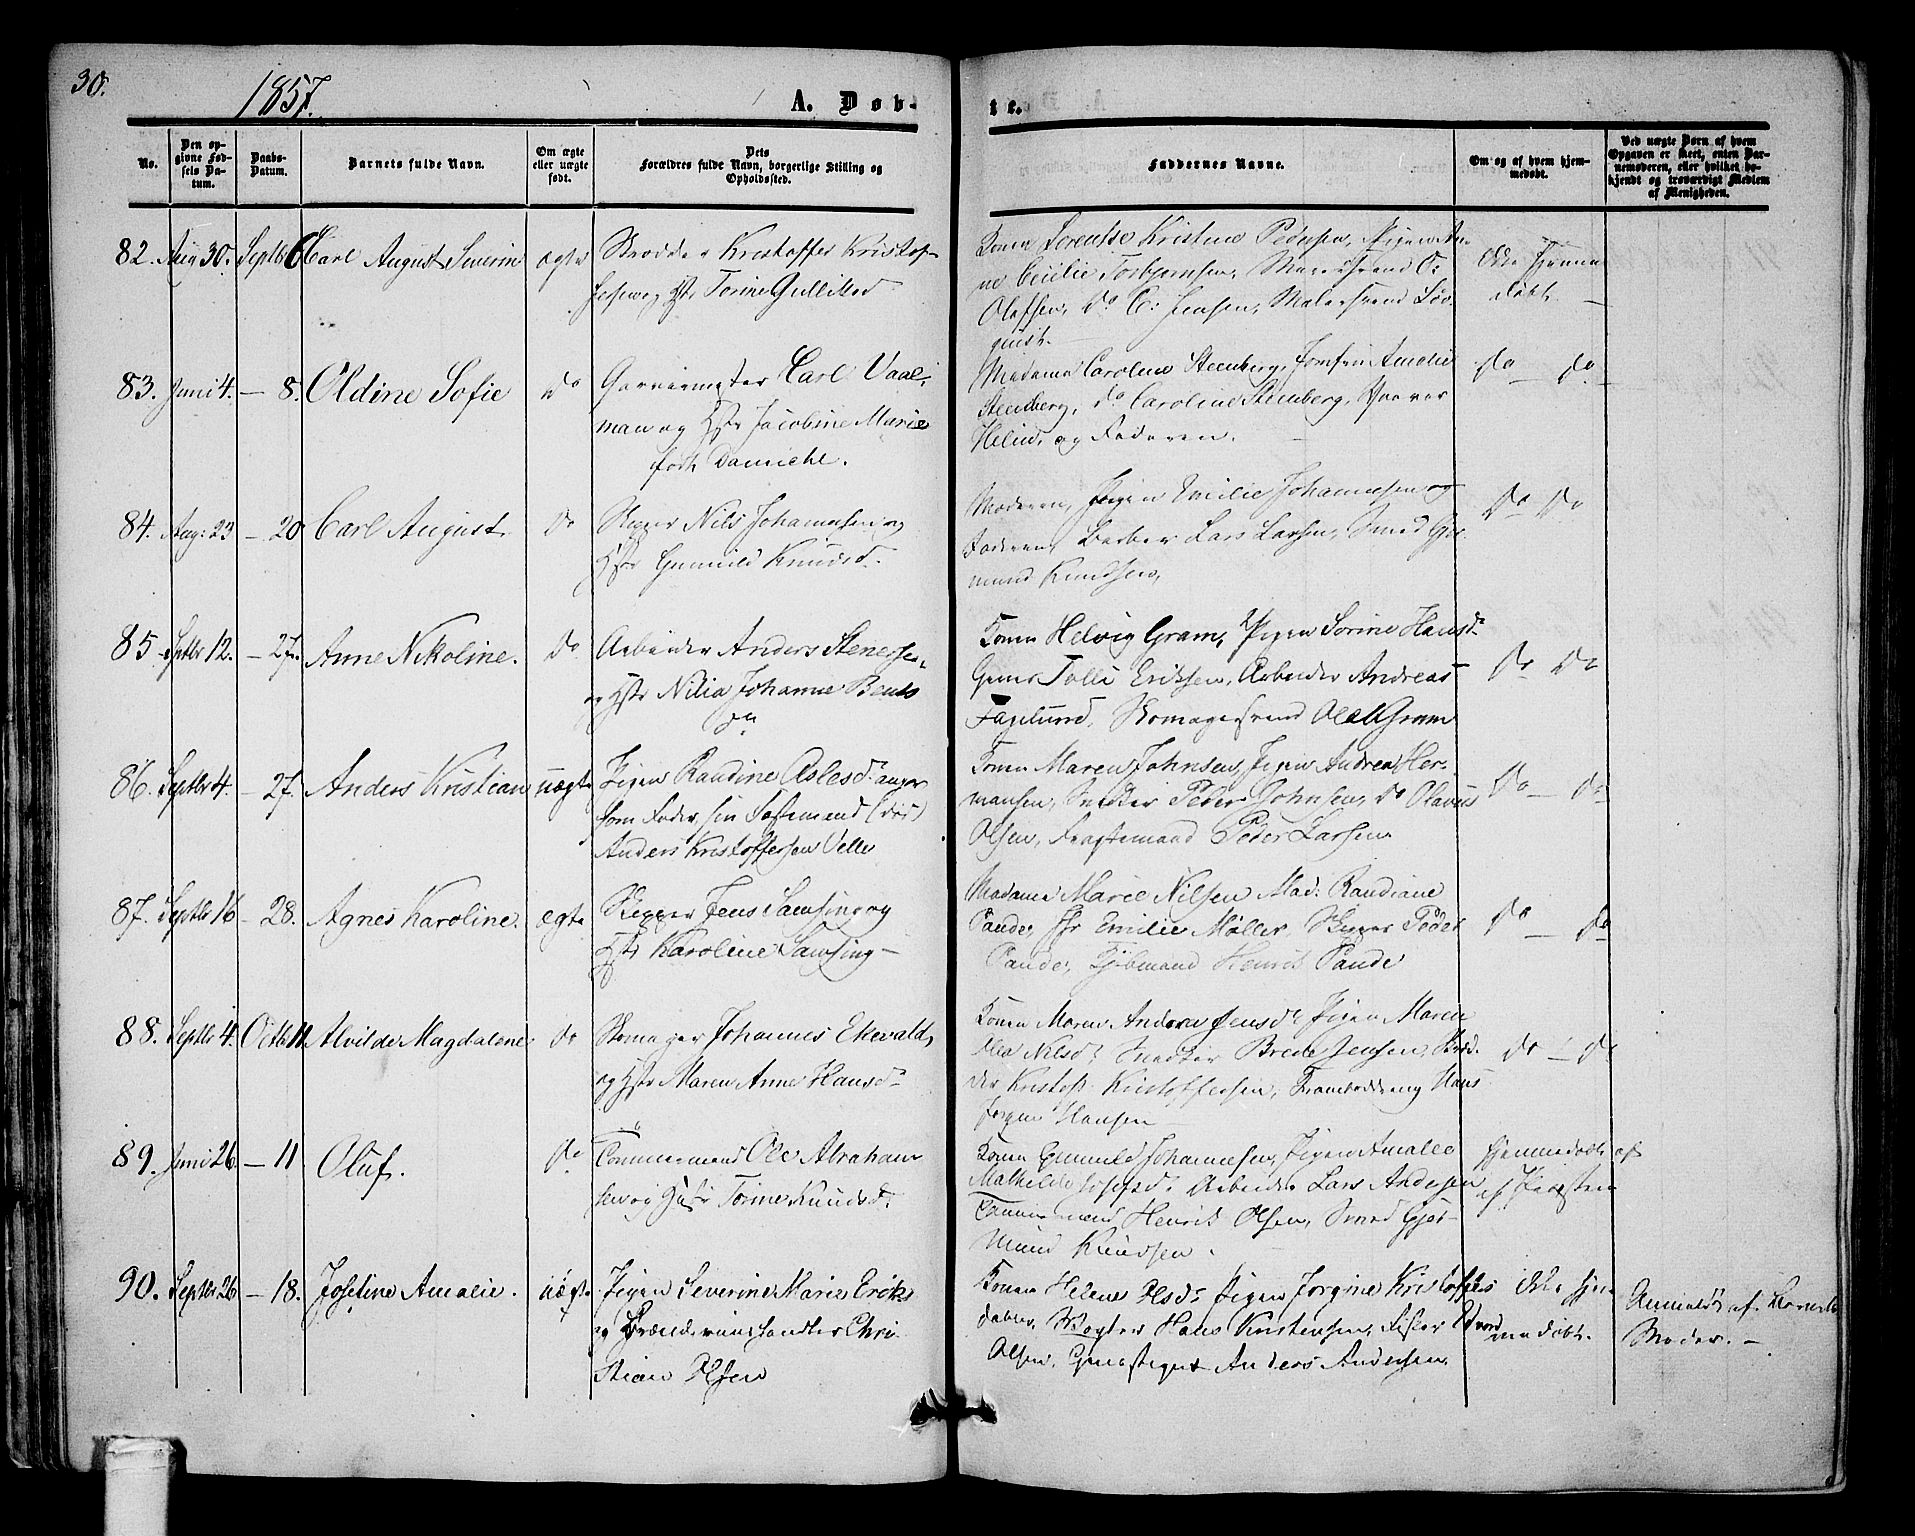 30.
1857.
A. Døb-
te.
No.
Den op-
givne Fød-
sels Da-
tum.
Daabs-
Datum.
Barnets fulde Navn.
Om ægte
eller uægte
født.
Dets
Forældres fulde Navn, borgerlige Stilling og
Opholdssted.
Faddernes Navne.
Om og af hvem hjem-
medøbt.
Ved uægte Børn af hvem
Opgaven er skeet, enten Bar-
nemoderen, eller hvilket be-
kjendt og troværdigt Medlem
af Menigheden.
82. Aug 30. Septbr 6 Carl August Severin ægte
Kristoffer Kristof-
fersen og Hstr Torine Gulliksd
Konen Lorentse Kristine Pedersen, Pigen An-
ne Cecilie Torbjørnsen, Murersvend O:
Olafsen, do C: Jensen, Malersvend Løv-
quist.
Ikke hjemme
døbt. —
83. Juni 4. — 8. Oldine Sofie do
Garvermester Carl Vaal-
man og Hstr Jacobine Marie
født
Madame Caroline Steenberg, Jomfru Amalie
Steenberg, do Caroline Steenberg,
og Faderen.
do — do
84. Aug: 23 — 20 Carl August do
Skipper Nils Johannesen og
Hstr Gunnild Knudsd.
Moderen, Pigen Emilie Johannesen og
Faderen, Barber Lars Larsen, Smed Gjer-
mund Knudsen,
do do
85 Septbr 12. — 27. Anne Nikoline. do
Arbeider Anders Stenersen
og Hstr Nilia Johanne Bents
dn
Konen Helvig Gram, Pigen Sorine Hansdr
Tolli Eriksen, Arbeider Andreas
Fagelund, Skomagersvend Ole Gram
do do
86. Septbr 4. — 27. Anders Kristian uægte
Pigen Randine Aslesdr anger
som Fader, sin Festemand (död)
Anders Kristoffersen Velle
Konen Maren Johnsen, Pigen Andrea Her-
mansen, Snedker Peder Johnsen, do Olavus
Olsen, Fragtemand Peder Larsen
do — do
87. Septbr 16 — 28. Agnes Karoline. ægte
Skipper Jens Samsing og
Hstr Karoline Samsing —
Madame Marie Nilsen Mad: Randiane
Paude, Emilie Møller, Skipper Peder
Paude, Henrik Paude
do — do
88. Septbr 4. Octbr 11 Alvilde Magdalene do
Skomager Johannes Ekevald,
og Hstr Maren Anne Hansdr
Konen Maren Andrea Jensdr Pigen Maren
Olea Nilsdr Snedker Brede Jensen,
Kristoffersen, Hans
Jørgen Hansen
do — do
89. Juni 26. — 11. Oluf. do
Tømmermand Ole Abraham
sen og Hustr Torine Knudsdr.
Konen Gunnild Johannesen, Pigen Amalie
Mathilde Josefsdr Arbeider Lars Andersen
Tømmermand Henrik Olsen, Smed Gjer-
mund Knudsen.
Hjemmedøbt af
af Præsten
90. Septbr 26 — 18. Josefine Amalie. uægte
Pigen Severine Marie Eriks
og Brændeviinshandler Chri-
stian Olsen
Konen Helene Olsdr Pigen Jorgine Kristoffers
datter, Hans Kristensen, Fisker Edvard
Olsen, Anders Andersen.
Ikke hjem
medøbt.
Anmeldt af Barnets
Moder. —